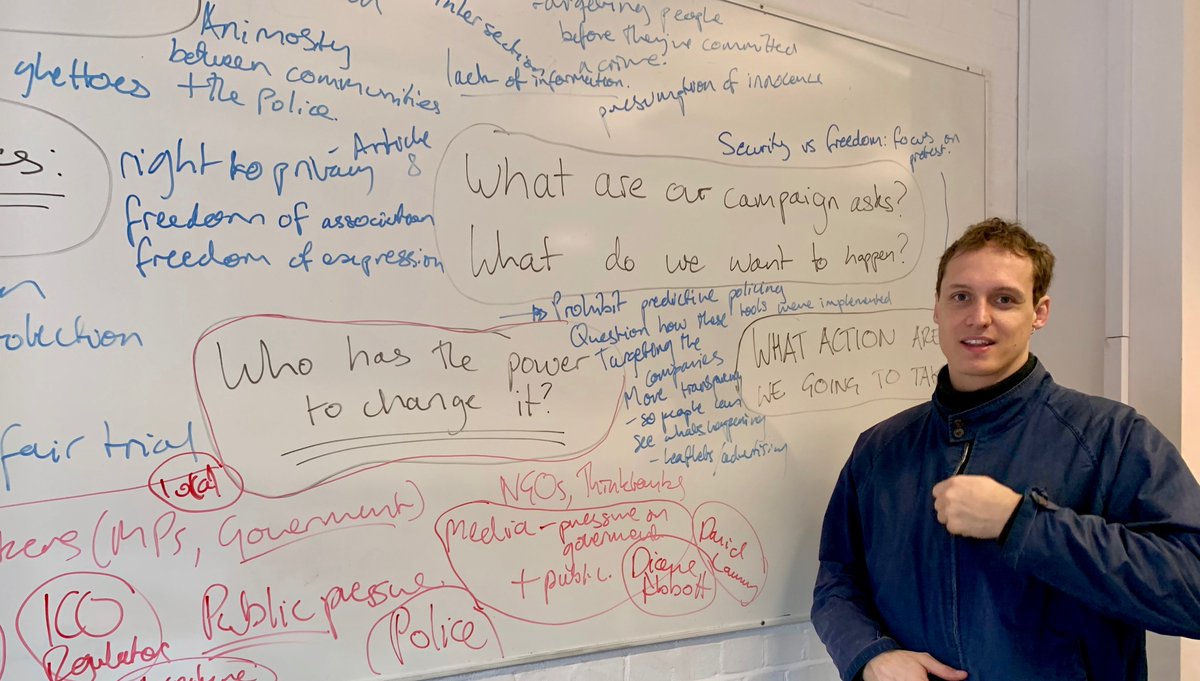 Animosty
between communities
+ the Police.
ghettoes
Intersection
targeting people
before they've committed
a crime.
lack of information.
presumption of innocence
Security vs freedom: focus on
protest.
right to privacy - Article
8
freedom of association
freedom of expression
What are our campaign asks?
What do we want to happen?
Prohibit predictive policing
Question how these tools were implemented
Targeting the
companies
More transparency
- so people can
see whats happening
- leaflets, advertising
WHAT ACTION ARE
WE GOING TO
Who has the power
to change it?
fair trial
Local
(MPs, Government)
NGOs, Thinktanks
Media - pressure on
government
+ public.
Diane
Abbott
David
ICO
Regulator
Public pressure
Police